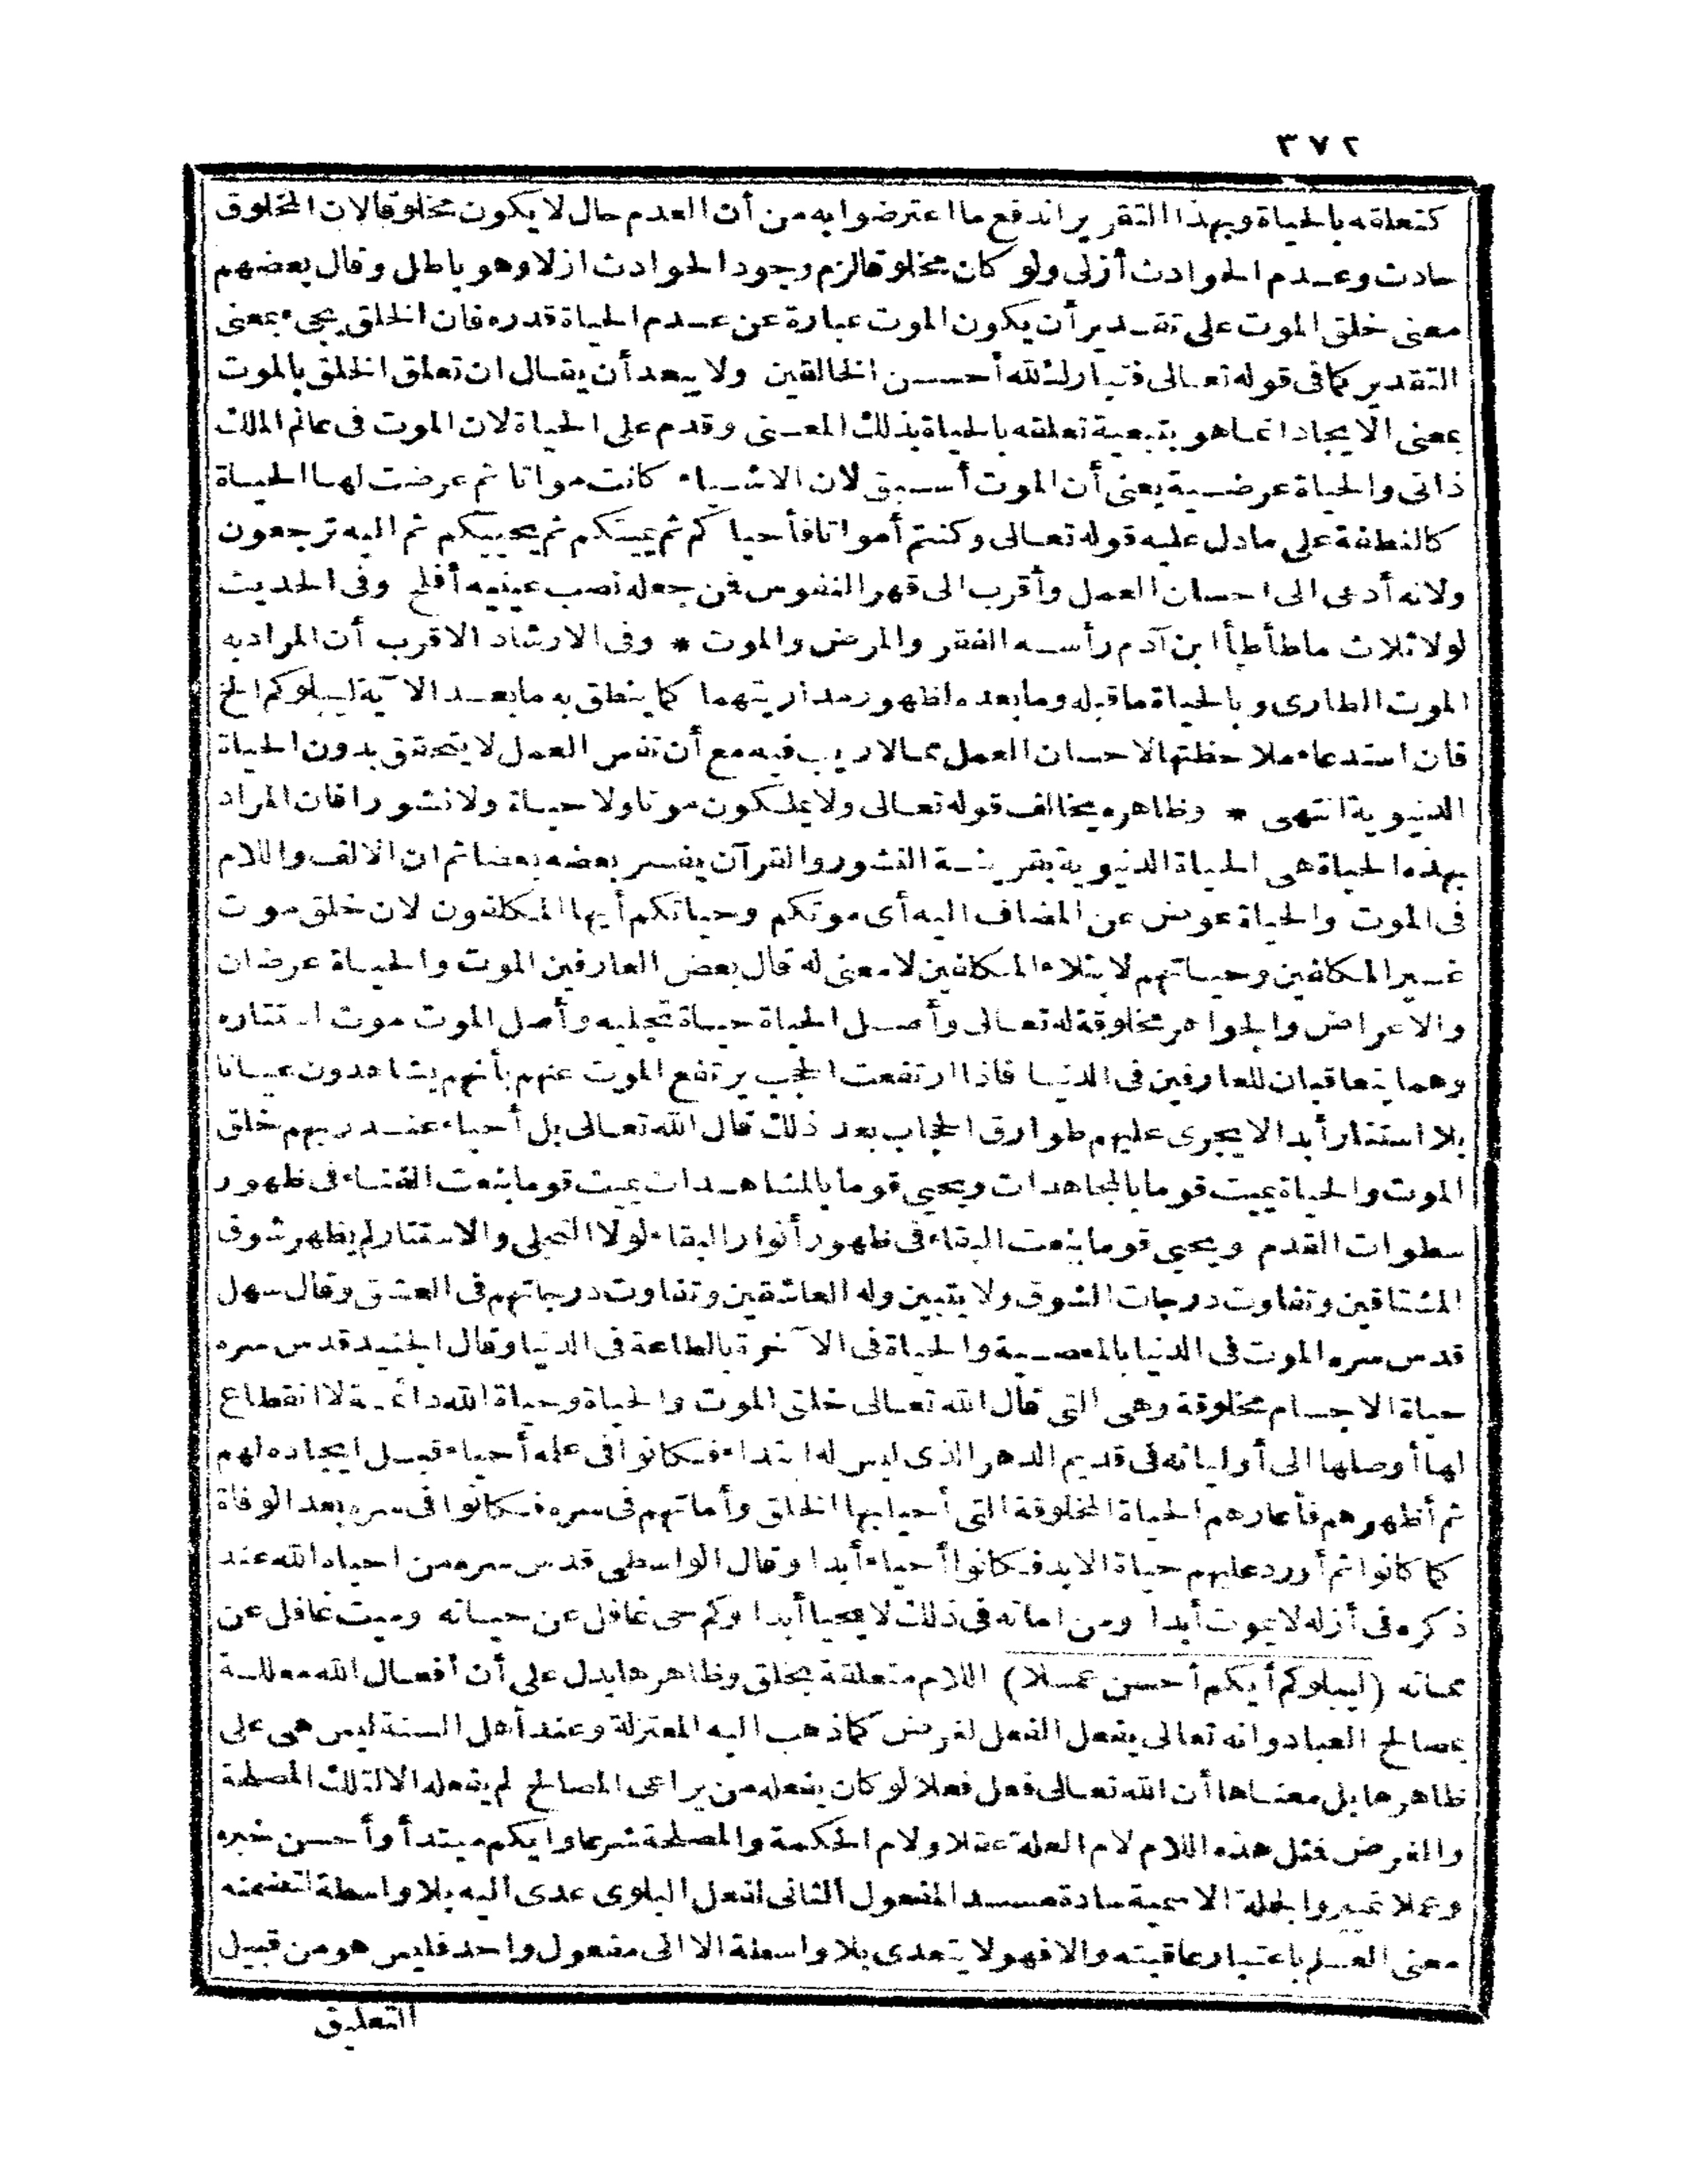 ٣٧٢
كتعلقه بالحياة وبهذا التقرير اندفع ما اعترضوا به من أن العدم حال لا يكون مخلوقا لان المخلوق
حادث وعدم الحوادث أزلى ولو كان مخلوقا لزم وجود الحوادث ازلا وهو باطل وقال بعضهم
معنى خلق الموت على تقدير أن يكون الموت عبارة عن عدم الحياة قدره فان الخلق يجىء بمعنى
التقدير كما فى قوله تعالى فتبارك الله أحسن الخالقين ولا يبعد أن يقال ان تعلق الخلق بالموت
بمعنى الايجاد انما هو بتبعية تعلقه بالحياة بذلك المعنى وقدم على الحياة لان الموت فى عالم الملك
ذاتى والحياة عرضية يعنى أن الموت أسبق لان الاشياء كانت مواتا ثم عرضت لها الحياة
كالنطفة على ما دل عليه قوله تعالى وكنتم أمواتا فأحياكم ثم يميتكم ثم يحييكم ثم اليه ترجعون
ولانه أدعى الى احسان العمل وأقرب الى قهر النفوس فمن جعله نصب عينيه أفلح وفى الحديث
لولا ثلاث ما طأطأ ابن آدم رأسه الفقر والمرض والموت * وفى الارشاد الاقرب أن المراد به
الموت الطارى وبالحياة ما قبله وما بعده لظهور مداريتهما كما ينطق به ما بعد الآية ليبلوكم الخ
فان استدعاء ملاحظتها لاحسان العمل مما لا ريب فيه مع أن نفس العمل لا يتحقق بدون الحياة
الدنيوية انتهى * وظاهره يخالف قوله تعالى ولا يملكون موتا ولا حياة ولا نشورا فان المراد
بهذه الحياة هى الحياة الدنيوية بقرينة النشور والقرآن يفسر بعضه بعضا ثم ان الالف واللام
فى الموت والحياة عوض عن المضاف اليه أى موتكم وحياتكم أيها المكلفون لان خلق موت
غير المكلفين وحياتهم لابتلاء المكلفين لا معنى له قال بعض العارفين الموت والحياة عرضان
والاعراض والجواهر مخلوقة له تعالى وأصل الحياة حياة تجليه وأصل الموت موت استتاره
وهما يتعاقبان للعارفين فى الدنيا فاذا ارتفعت الحجب يرتفع الموت عنهم بأنهم يشاهدون عيانا
بلا استتار أبدا لا يجرى عليهم طوارق الحجاب بعد ذلك قال الله تعالى بل أحياء عند ربهم خلق
الموت والحياة يميت قوما بالمجاهدات ويحيى قوما بالمشاهدات يميت قوما بنعت الفناء فى ظهور
سطوات القدم ويحيى قوما بنعت البقاء فى ظهور أنوار البقاء لولا التجلى والاستتار لم يظهر شوق
المشتاقين وتفاوت درجات الشوق ولا يتبين وله العاشقين وتفاوت درجاتهم فى العشق وقال سهل
قدس سره الموت فى الدنيا بالمعصية والحياة فى الآخرة بالطاعة فى الدنيا وقال الجنيد قدس سره
حياة الاجسام مخلوقة وهى التى قال الله تعالى خلق الموت والحياة وحياة الله دائمة لا انقطاع
لها أوصلها الى أوليائه فى قديم الدهر الذى ليس له ابتداء فكانوا فى علمه أحياء قبل ايجاده لهم
ثم أظهرهم فأعارهم الحياة المخلوقة التى أحيا بها الخلق وأماتهم فى سره فكانوا فى سره بعد الوفاة
كما كانوا ثم أورد عليهم حياة الابد فكانوا أحياء أبدا وقال الواسطى قدس سره من احياه الله عند
ذكره فى أزله لا يموت أبدا ومن اماته فى ذلك لا يحيا أبدا وكم حى غافل عن حياته وميت غافل عن
مماته (ليبلوكم أيكم أحسن عملا) اللام متعلقة بخلق وظاهرها يدل على أن أفعال الله معللة
بمصالح العباد وانه تعالى يفعل الفعل لغرض كما ذهب اليه المعتزلة وعند أهل السنة ليس هى على
ظاهرها بل معناها أن الله تعالى فعل فعلا لو كان يفعله من يراعى المصالح لم يفعله الا لتلك المصلحة
والغرض فمثل هذه اللام لام العلة عقلا ولام الحكمة والمصلحة شرعا وايكم مبتدأ وأحسن خبره
وعملا تمييز والجملة الاسمية سادة مسد المفعول الثانى لفعل البلوى عدى اليه بلا واسطة لتضمنه
معنى العلم باعتبار عاقبته والا فهو لا يتعدى بلا واسطة الا الى مفعول واحد فليس هو من قبيل
التعليق